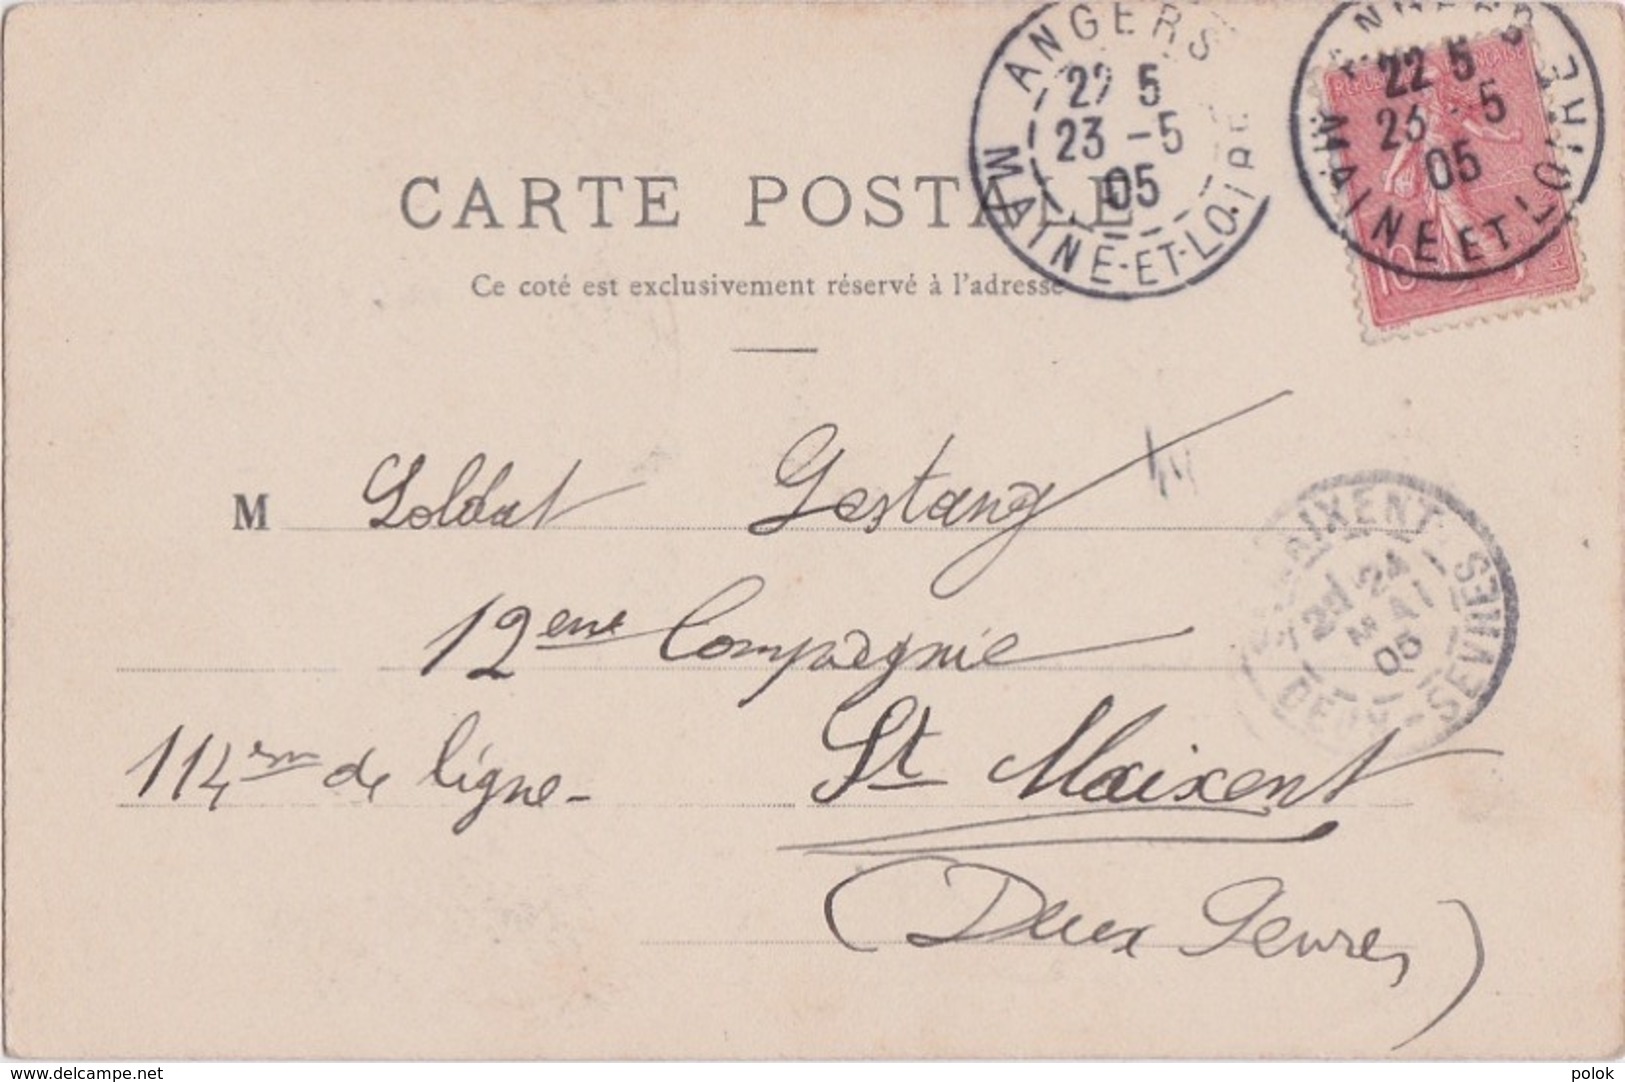 ANGERS
22 5
23 -5
05
MAINE-ET-LOIRE
22 5
23 -5
05
MAINE ET LOIRE
10
CARTE POSTALE
Ce coté est exclusivement réservé à l'adresse
M Soldat Gestang
12eme Compagnie
114em de ligne-
St Maixent
(Deux Sevres)
MAIXENT
24
MAI
05
DEUX-SEVRES
www.delcampe.net
polok